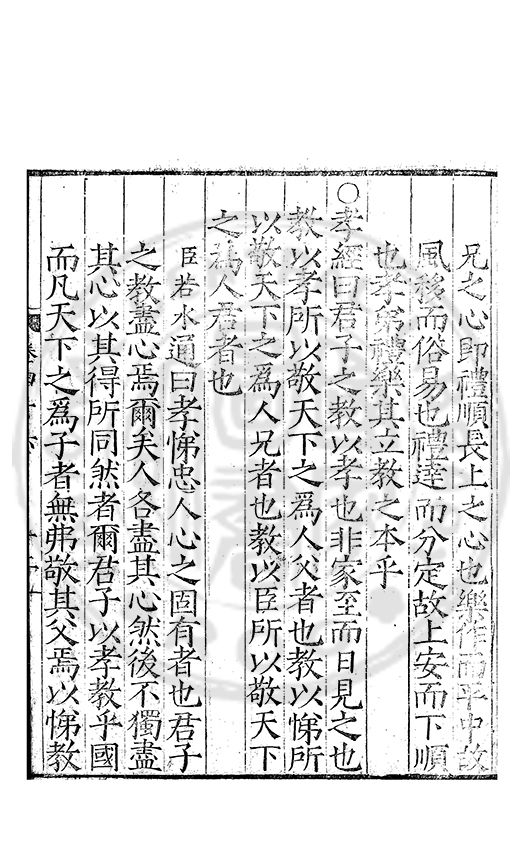 兄之心即禮順長上之心也樂作而平中故
風移而俗易也禮達而分定故上安而下順
也孝弟禮樂其立教之本乎
○孝經曰君子之教以孝也非家至而日見之也
教以孝所以敬天下之爲人父者也教以悌所
以敬天下之爲人兄者也教以臣所以敬天下
之爲人君者也
臣若水通曰孝悌忠人心之固有者也君子
之教盡心焉爾矣人各盡其心然後不獨盡
其心以其得所同然者爾君子以孝教乎國
而凡天下之爲子者無弗敬其父焉以悌教